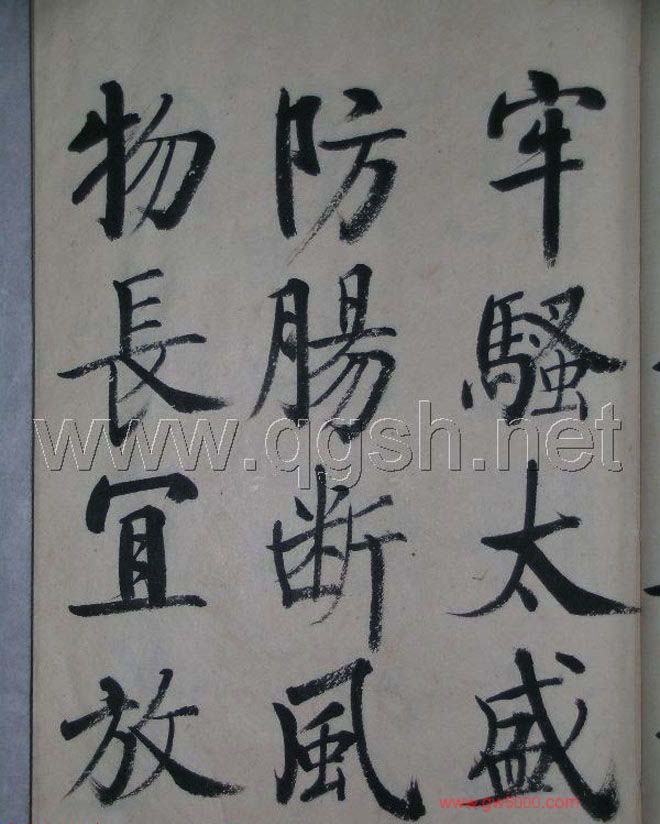 牢騷太盛
防腸断風
物長宜放
www.qgsh.net
www.gw5000.com